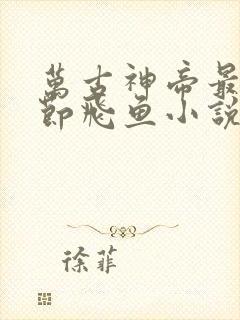 萬古神帝最
節飛魚小說
徐菲